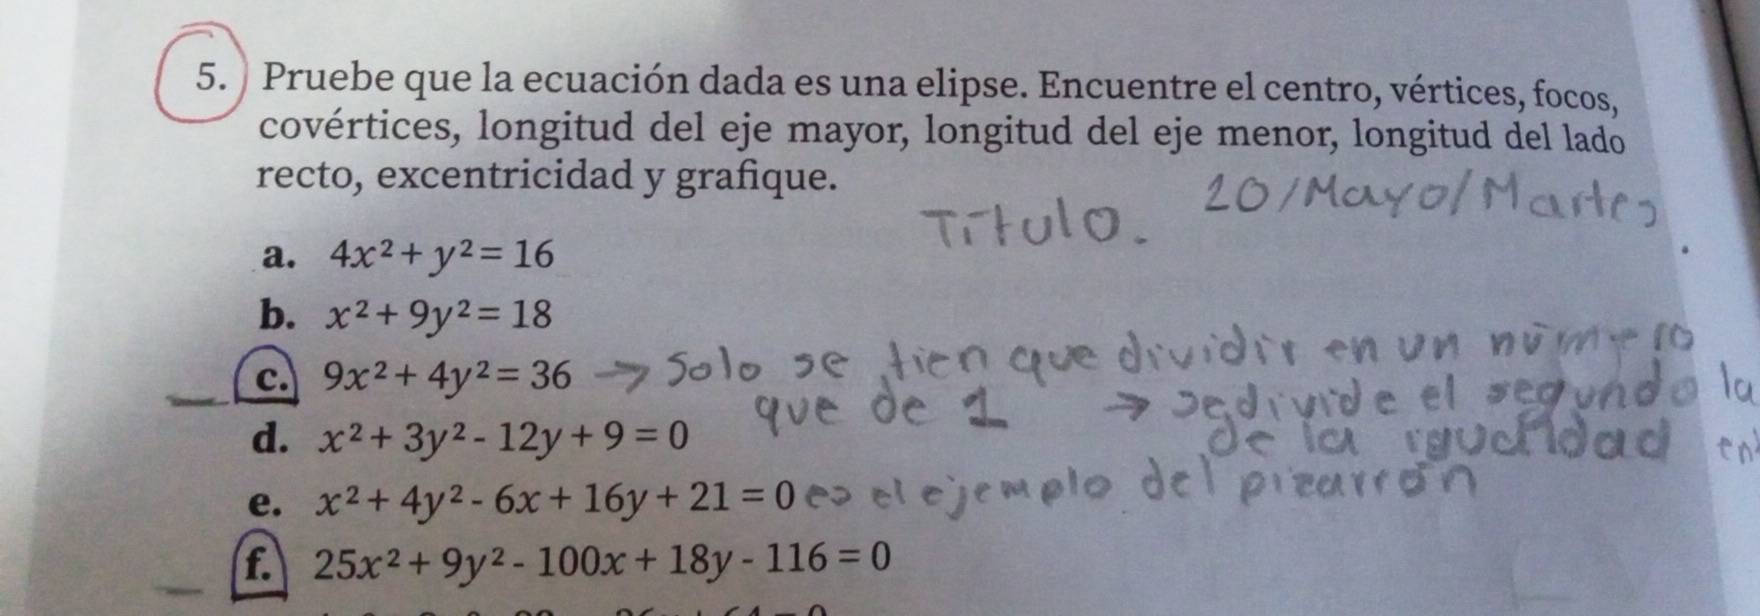 5. Pruebe que la ecuación dada es una elipse. Encuentre el centro, vértices, focos,
covértices, longitud del eje mayor, longitud del eje menor, longitud del lado
recto, excentricidad y grafique.
Título. 20/Mayo/Martes
a. 4x² + y² = 16
b. x² + 9y² = 18
c. 9x² + 4y² = 36 → Solo se tien que dividir en un número
que de 1 → se divide el segundo la
d. x² + 3y² - 12y + 9 = 0 de la igualdad en
e. x² + 4y² - 6x + 16y + 21 = 0 es el ejemplo del pizarrón
f. 25x² + 9y² - 100x + 18y - 116 = 0